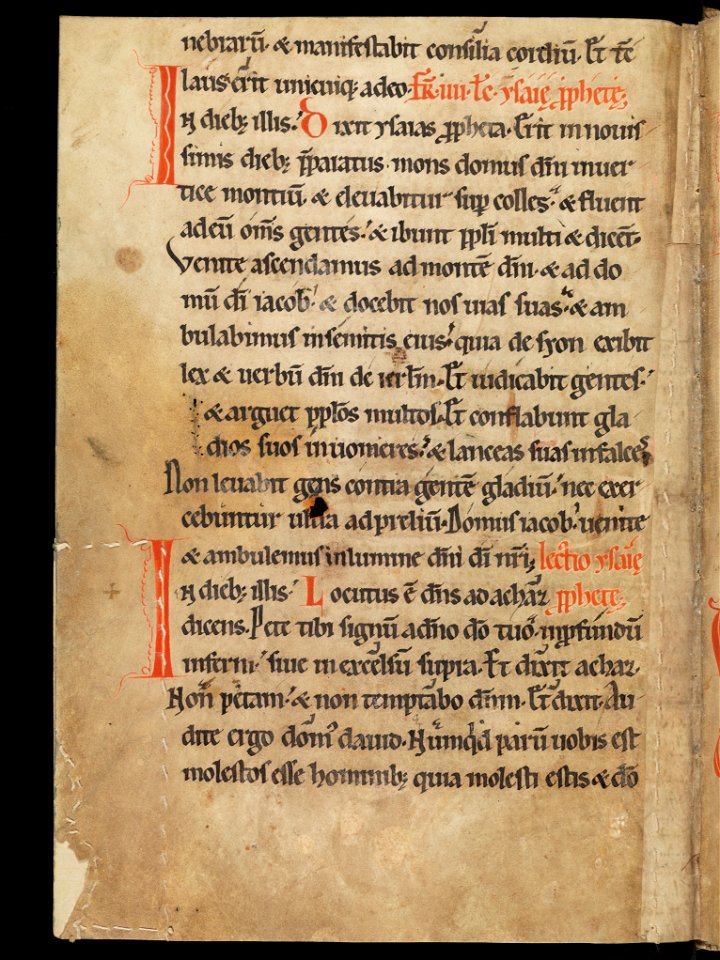 nebrarū· & manifestabit consilia cordiū· Et tc̄
lauserit unicuiq; adeo· Fr̄· iiii· Lc̄· ysaię ꝓphetę;
In dieb; illis· Dixit ysaias ꝓpheta· Erit in nouis
simis dieb; p̄paratus mons domus dn̄i in uer
tice montiū· & eleuabitur sup colles· & fluent
ad eū om̄s gentes· & ibunt ppl̄i multi & dicēt·
Venite ascendamus ad montē dn̄i· & ad do
mū dī iacob· & docebit nos uias suas· & am
bulabimus in semitis eius· quia de syon exibit
lex & uerbū dn̄i de ierlm̄· Et iudicabit gentes·
& arguet ppl̄os multos· Et conflabunt gla
dios suos in uomeres· & lanceas suas in falces
Non leuabit gens contra gentē gladiū· nec exer
cebuntur ultra ad preliū· Domus iacob· uenite
& ambulemus in lumine dn̄i dī nr̄i; lectio ysaię
In dieb; illis· Locutus ē dn̄s ad achaz ꝓphetę;
dicens· Pete tibi signū a dn̄o dō tuo· in ꝓfundū
inferni· siue in excelsū supra· Et dixit achaz·
Non petam· & non temptabo dn̄m· Et dixit· Au
dite ergo dom' dauid· Nūmqd parū uobis est
molestos esse hominib; quia molesti estis & dō